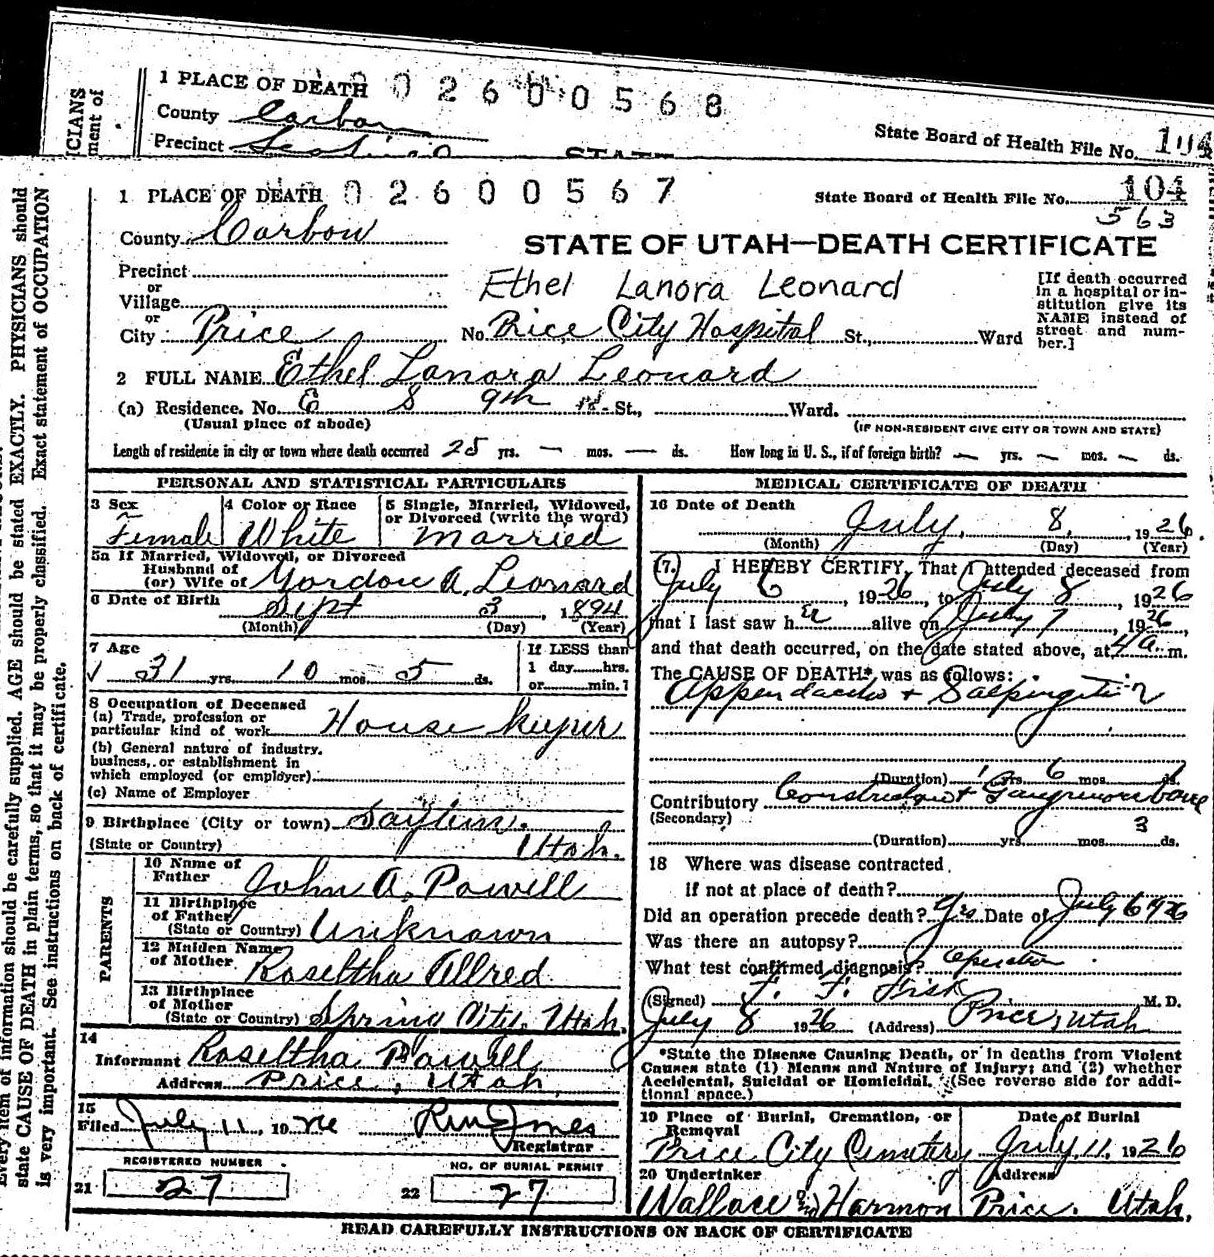 1 PLACE OF DEATH 0 2 6 0 0 5 6 8
County Carbon
Precinct
State Board of Health File No. 104
STATE
1 PLACE OF DEATH 0 2 6 0 0 5 6 7
State Board of Health File No. 104
563
County Carbon
STATE OF UTAH—DEATH CERTIFICATE
Precinct
or
Village
Ethel Lanora Leonard
[If death occurred in a hospital or institution give its NAME instead of street and number.]
or
City Price No. Price City Hospital St., Ward
2 FULL NAME Ethel Lanora Leonard
(a) Residence. No. E 8 9th St., Ward.
(Usual place of abode) (IF NON-RESIDENT GIVE CITY OR TOWN AND STATE)
Length of residence in city or town where death occurred 25 yrs. — mos. — ds. How long in U. S., if of foreign birth? — yrs. — mos. — ds.
PERSONAL AND STATISTICAL PARTICULARS
3 Sex Female
4 Color or Race White
5 Single, Married, Widowed, or Divorced (write the word) Married
5a If Married, Widowed, or Divorced
Husband of
(or) Wife of Gordon A. Leonard
6 Date of Birth Sept 3, 1894
(Month) (Day) (Year)
7 Age 31 yrs. 10 mos. 5 ds.
If LESS than
1 day....hrs.
or....min.?
8 Occupation of Deceased
(a) Trade, profession or
particular kind of work House keeper
(b) General nature of industry,
business, or establishment in
which employed (or employer)
(c) Name of Employer
9 Birthplace (City or town)
(State or Country) Utah.
PARENTS
10 Name of
Father John A. Powell
11 Birthplace
of Father
(State or Country) Unknown
12 Maiden Name
of Mother Roseltha Allred
13 Birthplace
of Mother
(State or Country) Spring City, Utah.
14
Informant Roseltha Powell
Address Price, Utah
15
Filed July 11, 1926
Registrar
REGISTERED NUMBER
21 27
NO. OF BURIAL PERMIT
22 27
MEDICAL CERTIFICATE OF DEATH
16 Date of Death July, 8, 1926.
(Month) (Day) (Year)
17. I HEREBY CERTIFY, That I attended deceased from
July 6, 1926, to July 8, 1926
that I last saw her alive on July 7, 1926,
and that death occurred, on the date stated above, at 4 a. m.
The CAUSE OF DEATH* was as follows:
(Duration) 1 yrs. 6 mos. ds.
Contributory
(Secondary)
(Duration) yrs. mos. 3 ds.
18 Where was disease contracted
if not at place of death?
Did an operation precede death? Yes Date of July 6 1926
Was there an autopsy?
What test confirmed diagnosis? Operation
(Signed) F. F. Fisk, M. D.
July 8 1926 (Address) Price, Utah
*State the Disease Causing Death, or in deaths from Violent
Causes state (1) Means and Nature of Injury; and (2) whether
Accidental, Suicidal or Homicidal. (See reverse side for addi-
tional space.)
19 Place of Burial, Cremation, or Removal
Price City Cemetery
Date of Burial
July, 11, 1926
20 Undertaker
Wallace & Harmon
Address
Price, Utah.
READ CAREFULLY INSTRUCTIONS ON BACK OF CERTIFICATE
Every item of information should be carefully supplied. AGE should be stated EXACTLY. PHYSICIANS should
state CAUSE OF DEATH in plain terms, so that it may be properly classified. Exact statement of OCCUPATION
is very important. See instructions on back of certificate.